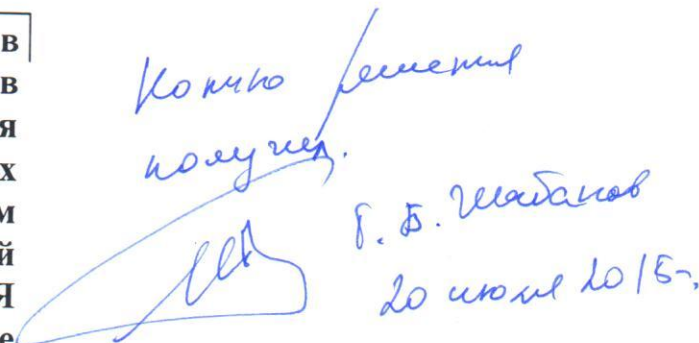 в
в
я
х
м
й
Я
е
Копию решения
получил.
Г. Б. Шабанов
20 июля 2015г.